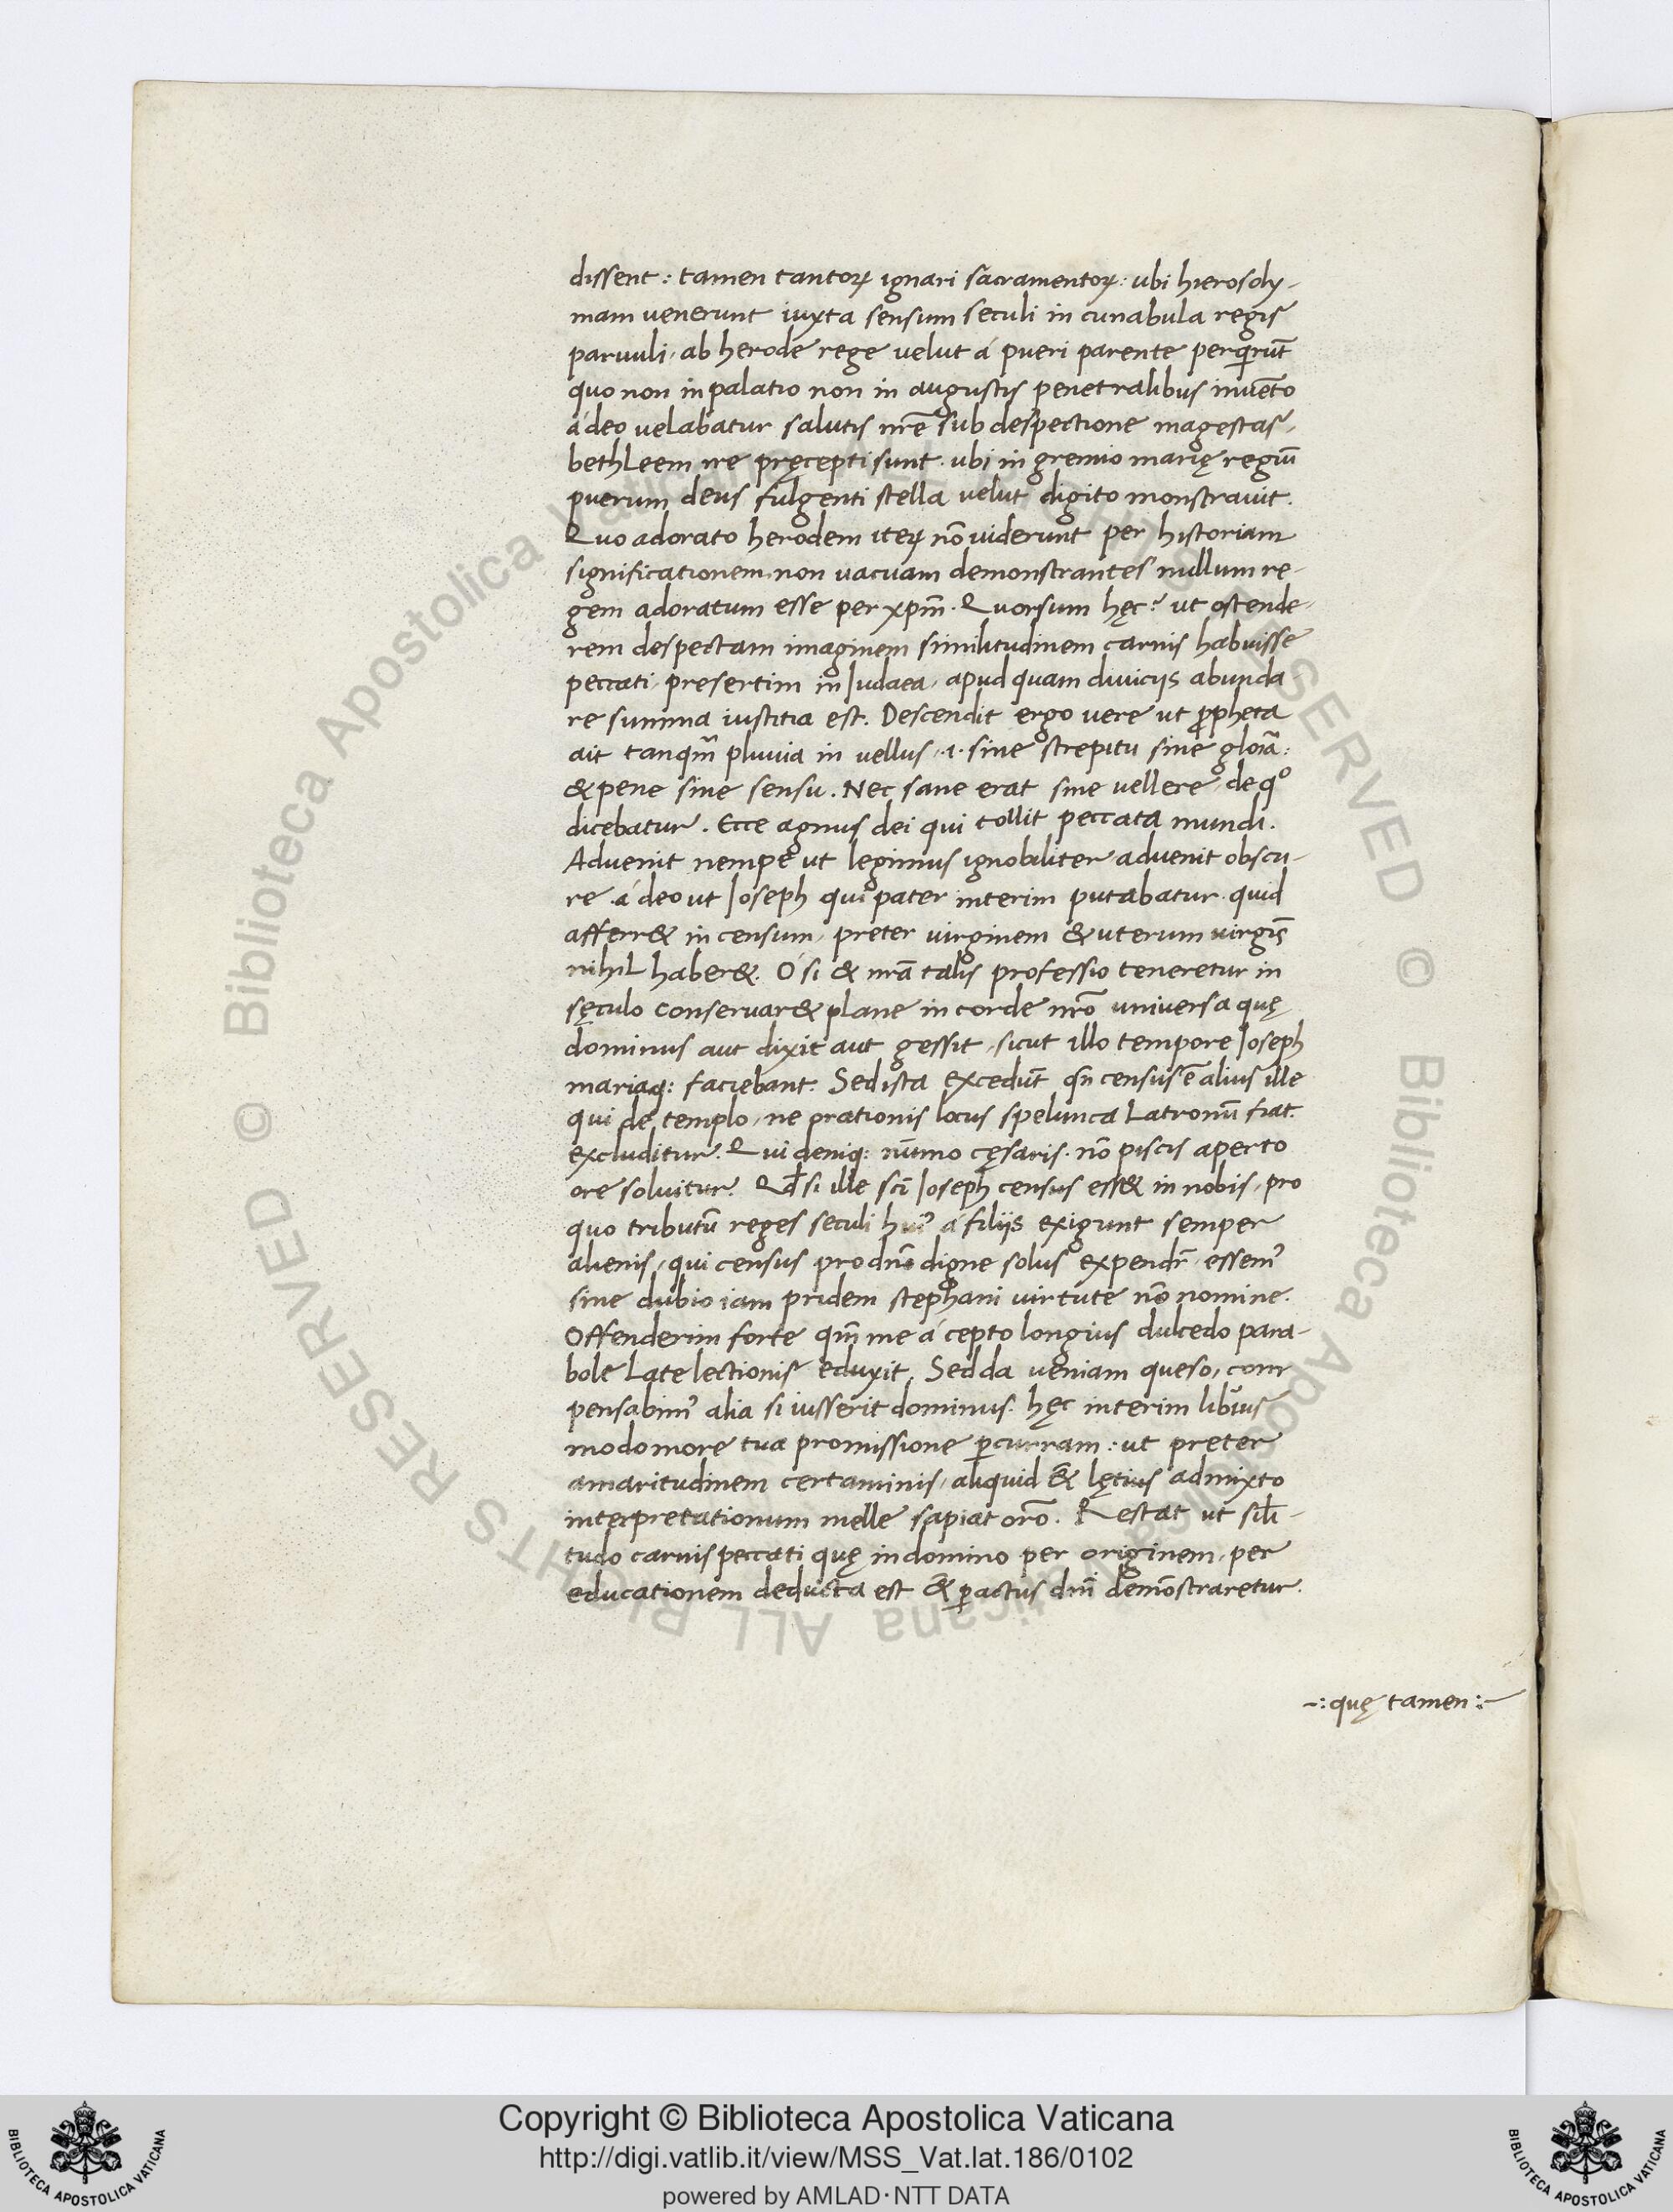 dissent : tamen tantoꝝ ignari sacramentoꝝ : ubi hierosoly-
mam uenerunt iuxta sensum seculi in cunabula regis
paruuli, ab herode rege uelut á pueri parente perqͥrūt
quo non in palatio non in augustis penetralibus inuēto
ádeo uelabatur salutis nr̄e sub despectione magestas,
bethleem ire pręcepti sunt. ubi in gremio marię regiū
puerum deus fulgenti stella uelut digito monstrauit.
Quo adorato herodem iteꝝ nō uiderunt per historiam
significationem, non uacuam demonstrantes nullum re-
gem adoratum esse per xpm̄. Quorsum hęc? ut ostende-
rem despectam imaginem similitudinem carnis habuisse
peccati, presertim in Iudaea, apud quam diuicijs abunda-
re summa iustitia est. Descendit ergo uere ut ꝓpheta
ait tanqm̄ pluuia in uellus .i. sine strepitu sine glōia :
& pene sine sensu. Nec sane erat sine uellere, de qͦ
dicebatur. Ecce agnus dei qui tollit peccata mundi.
Aduenit nempe ut legimus ignobiliter aduenit obscu-
re. á deo ut Ioseph qui pater interim putabatur. quid
afferr& in censum, preter uirginem & uterum uirgīs
nihil haber&. O si & nr̄a talis professio teneretur in
sęculo conseruar& plane in corde nr̄o uniuersa quę
dominus aut dixit aut gessit, sicut illo tempore Ioseph
mariaq; faciebant. Sed ista excedūt qn̄ census ē alius ille
qui de templo, ne orationis locus spelunca latronū fiat.
excluditur. Qui deniq; nūmo cęsaris. nō piscis aperto
ore soluitur. Qđ si ille scī Ioseph census ess& in nobis, pro
quo tributū reges seculi huiꝰ á filijs exigunt semper
alienis, qui census pro dn̄o digne solus expendr̄, essemꝰ
sine dubio iam pridem stephani uirtute nō nomine.
Offenderim forte qm̄ me á cepto longius dulcedo para-
bole late lectionis eduxit, Sed da ueniam queso, com
pensabimꝰ alia si iusserit dominus. hęc interim libiūs
modo more tua promissione ꝑcurram : ut preter
amaritudinem certaminis, aliquid & lętius admixto
interpretationum melle sapiat or̄o. Restat ut sil̄i-
tudo carnis peccati quę in domino per originem, per
educationem deducta est & ꝑ actus dn̄i demōstraretur.
-: quę tamen :-
© Biblioteca Apostolica Vaticana ALL RIGHTS RESERVED © Biblioteca Apostolica Vaticana ALL RIGHTS RESERVED
Copyright © Biblioteca Apostolica Vaticana
http://digi.vatlib.it/view/MSS_Vat.lat.186/0102
powered by AMLAD·NTT DATA
BIBLIOTECA APOSTOLICA VATICANA
BIBLIOTECA APOSTOLICA VATICANA